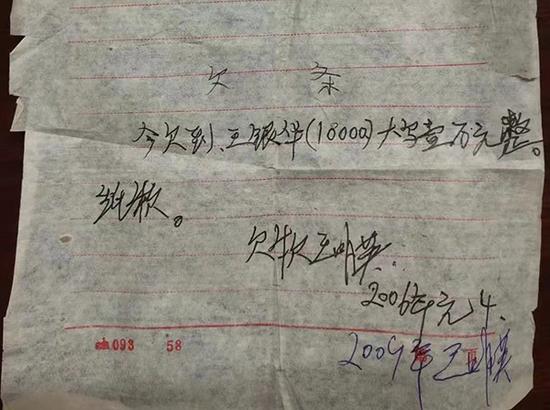 欠 条
今欠到、王银华(18000)大写壹万元整。
纸款。
欠款王明英.
2006年元4.
2009年王明英
093 58